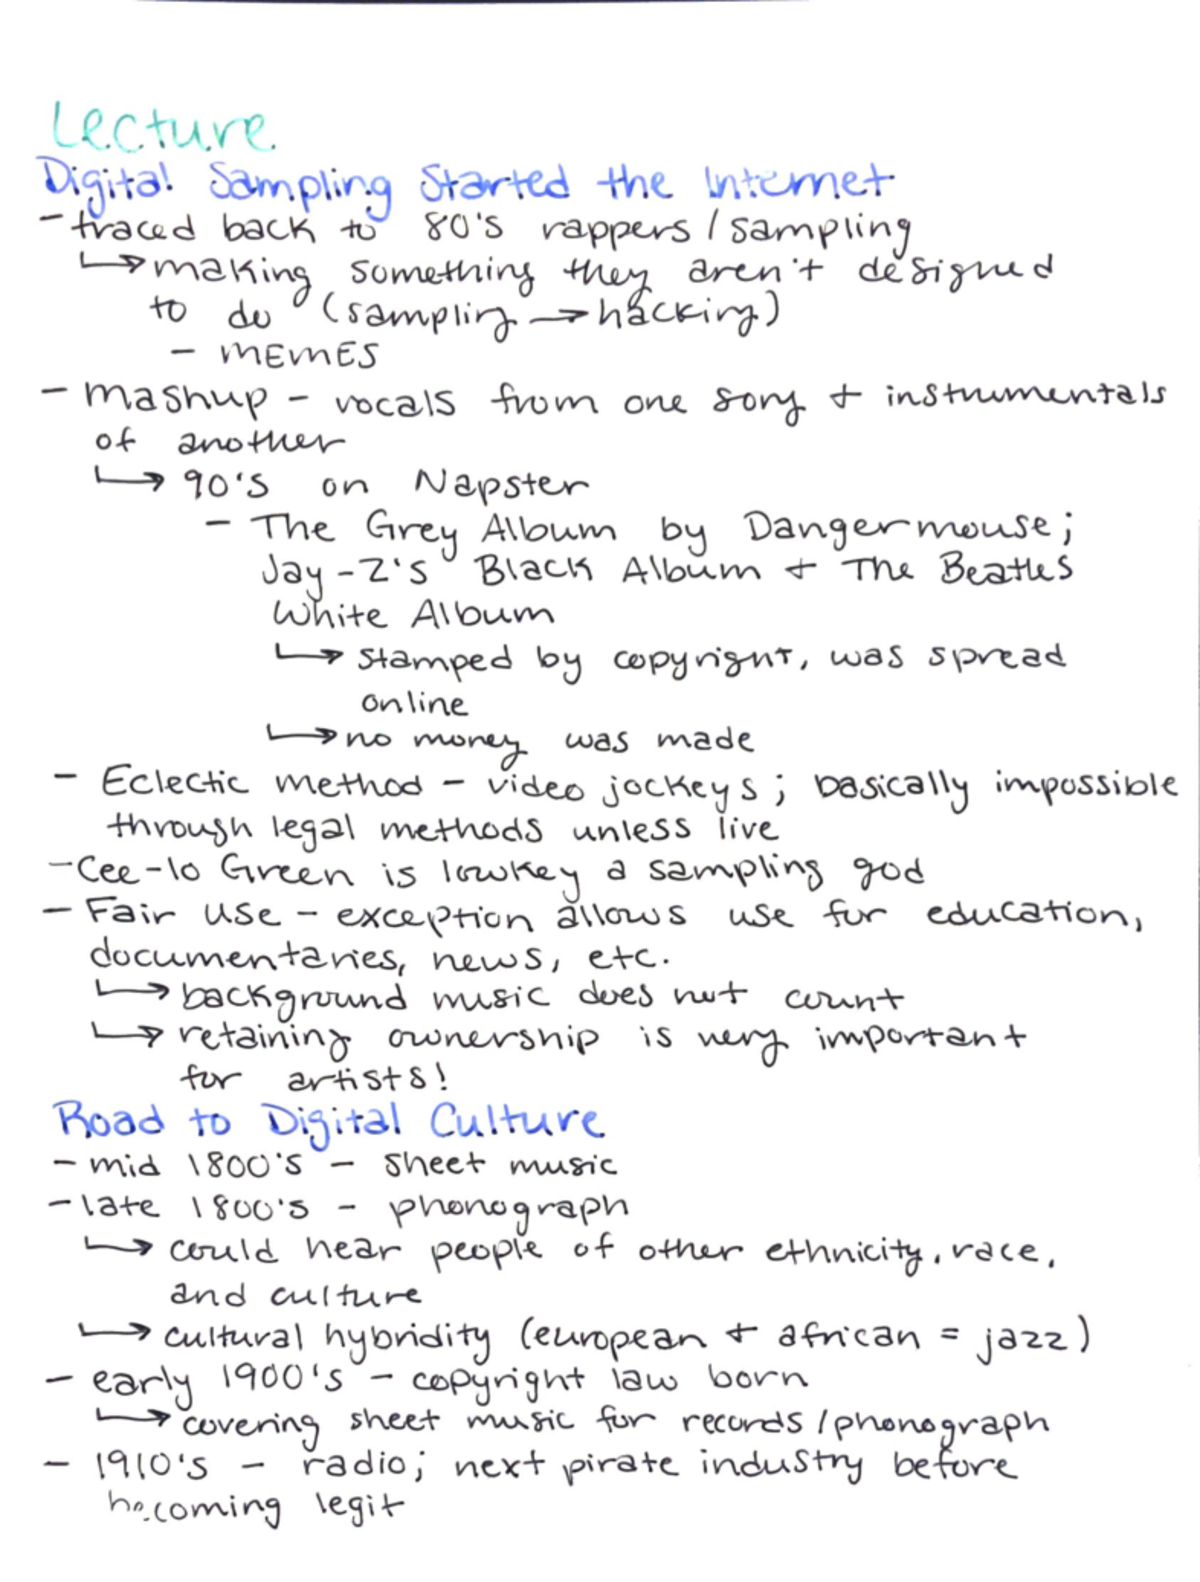 Lecture
Digital Sampling Started the Internet
- traced back to 80's rappers / sampling
↳ making something they aren't designed
to do (sampling → hacking)
- MEMES
- Mashup - vocals from one song + instrumentals
of another
↳ 90's on Napster
- The Grey Album by Dangermouse;
Jay-Z's Black Album + The Beatles
White Album
↳ stamped by copyright, was spread
online
↳ no money was made
- Eclectic method - video jockeys; basically impossible
through legal methods unless live
- Cee-lo Green is lowkey a sampling god
- Fair use - exception allows use for education,
documentaries, news, etc.
↳ background music does not count
↳ retaining ownership is very important
for artists!
Road to Digital Culture
- mid 1800's - sheet music
- late 1800's - phonograph
↳ could hear people of other ethnicity, race,
and culture
↳ cultural hybridity (european + african = jazz)
- early 1900's - copyright law born
↳ covering sheet music for records / phonograph
- 1910's - radio; next pirate industry before
becoming legit